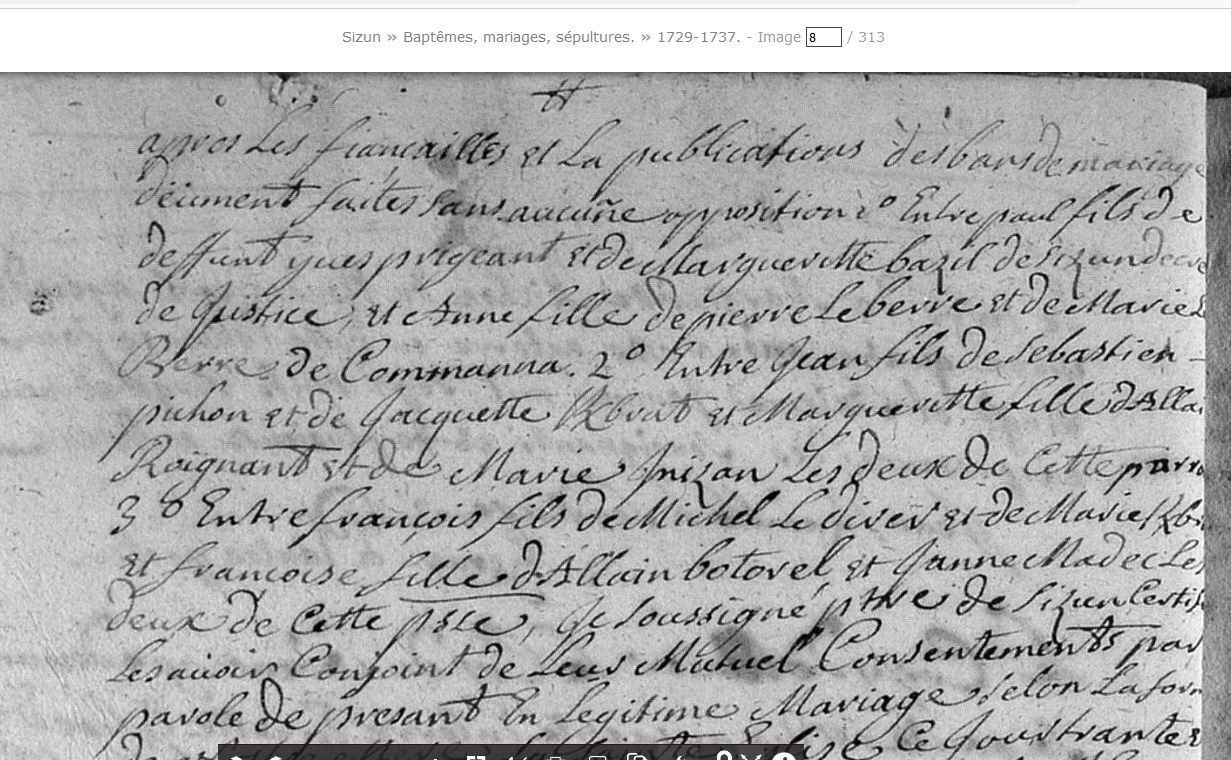 Sizun » Baptêmes, mariages, sépultures. » 1729-1737. - Image 8 / 313
apres Les fiancailles et La publications des bans de mariage
deument faites sans aucune opposition 1° Entre paul fils de
deffunt yves prigeant et de Margueritte bazil de Sizun
de Justice, et Anne fille de pierre Le berre et de Marie
Berre de Commanna. 2° Entre Jean fils de Sebastien -
pichon et de Jacquette Kbrat et Margueritte fille d'Alla
Roignant et de Marie Inizan Les deux de Cette parro
3° Entre françois fils de Michel Le diver et de Marie Kbr
et francoise fille d'Allain botorel et Janne Madec Les
deux de Cette psse, Je soussigné ptre de Sizun Certif
Les avoir Conjoint de Leur Mutuel Consentements par
parole de presant En Legitime Mariage selon La for
Eglise Ce Jour trante